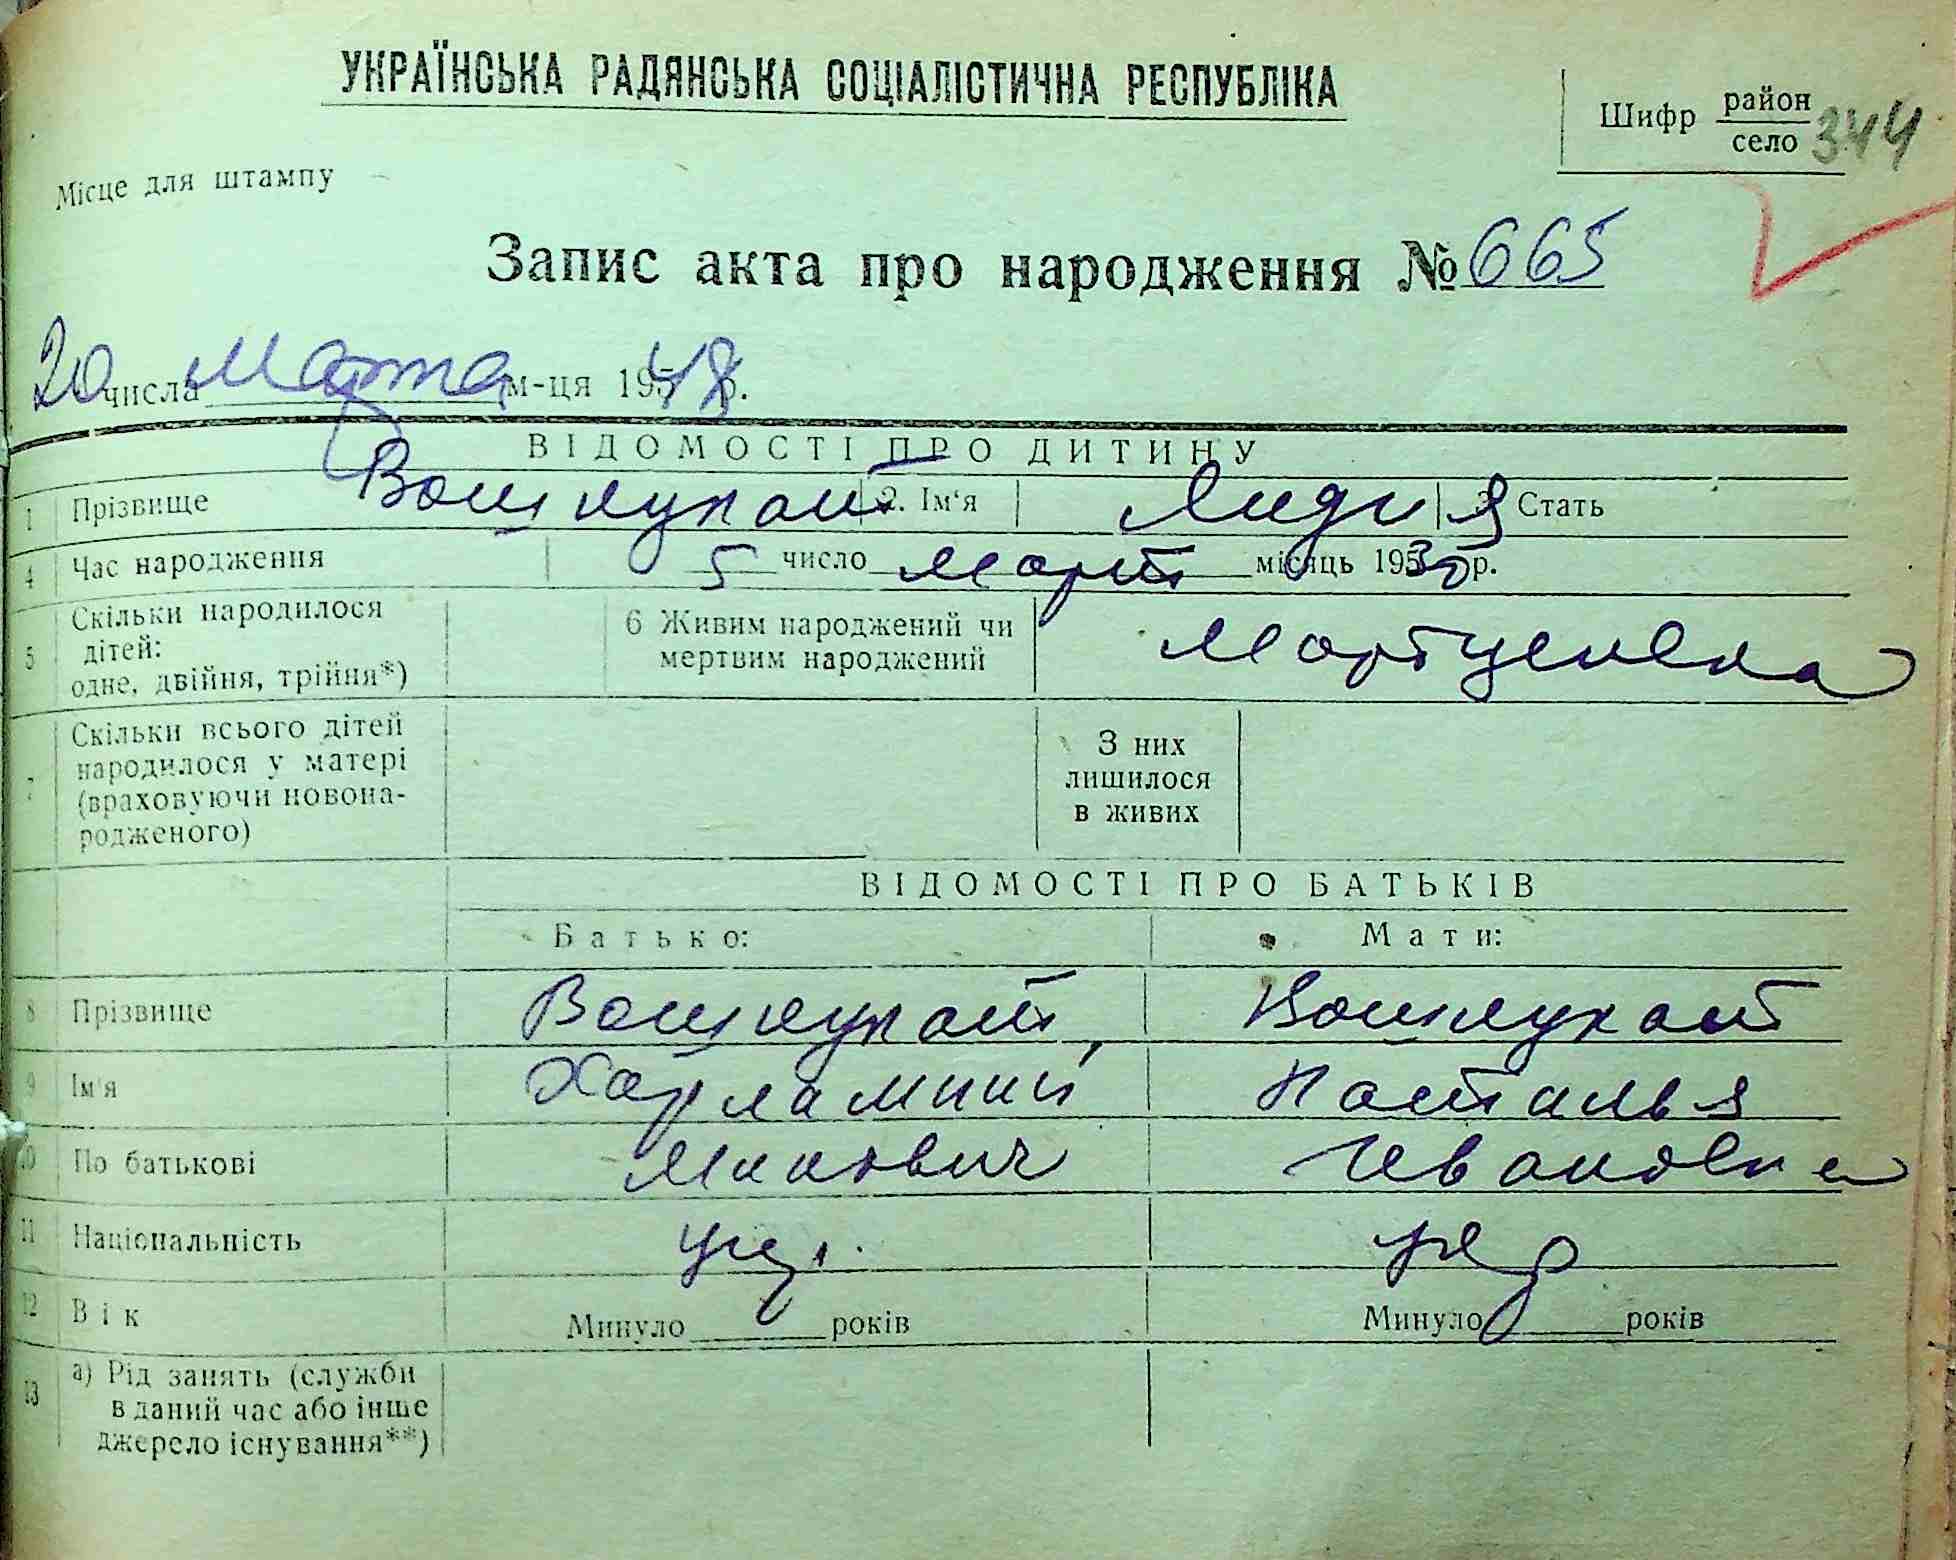 УКРАЇНСЬКА РАДЯНСЬКА СОЦІАЛІСТИЧНА РЕСПУБЛІКА
Шифр район
село 344
Місце для штампу
Запис акта про народження № 665
20 числа Марта м-ця 1948 р.
ВІДОМОСТІ ПРО ДИТИНУ
1 Прізвище 2. Ім'я Лидия Стать
4 Час народження 5 число Март місяць 1930 р.
5 Скільки народилося дітей: одне, двійня, трійня*) 6 Живим народжений чи мертвим народжений
7 Скільки всього дітей народилося у матері (враховуючи новонародженого) З них лишилося в живих
ВІДОМОСТІ ПРО БАТЬКІВ
Батько: Мати:
8 Прізвище
9 Ім'я Харлампий Наталья
10 По батькові Ивановна
11 Національність укр. укр
12 Вік Минуло років Минуло років
13 а) Рід занять (служби в даний час або інше джерело існування**)